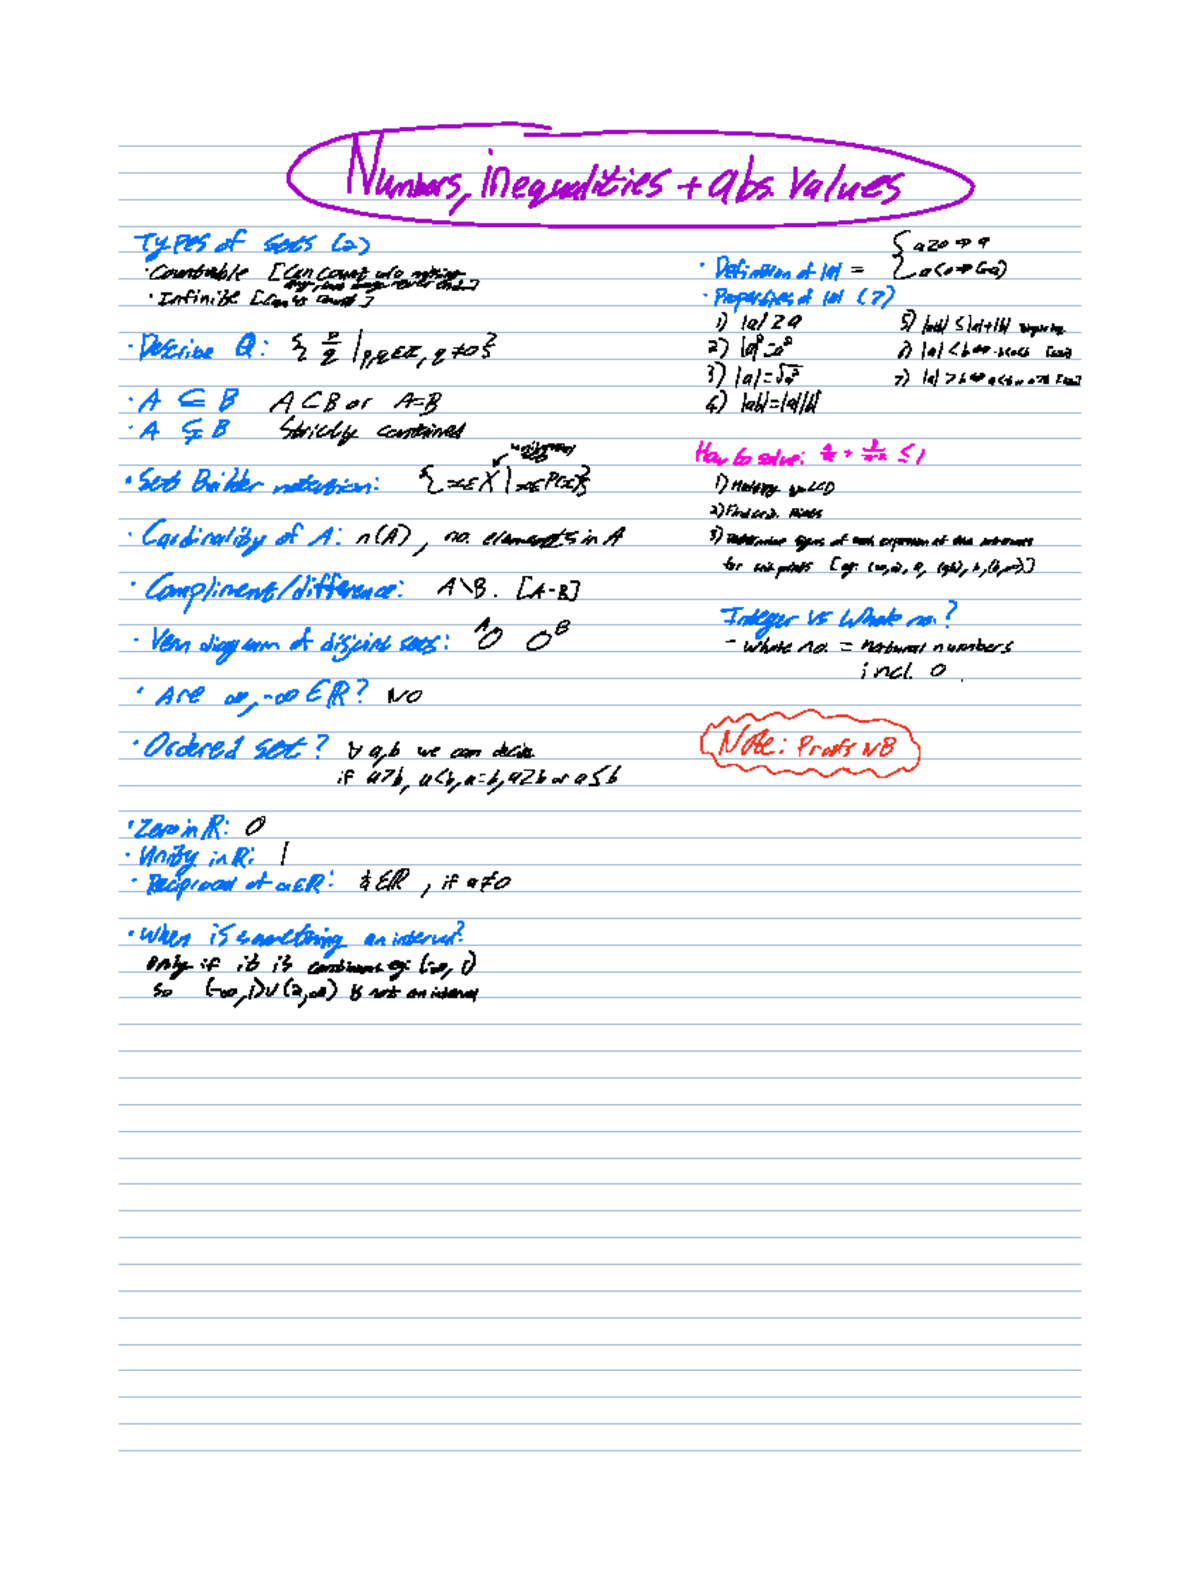 Numbers, inequalities + abs. Values
Types of sets (2)
· Countable [Can count w/o missing
· Infinite [Can't count]
· Describe Q: { p/q | p,q ∈ Z, q ≠ 0 }
· A ⊆ B A ⊂ B or A=B
· A ⊊ B Strictly contained
· Set Builder notation: { x ∈ X | x ∈ P(x) }
· Cardinality of A: n(A), no. elements in A
· Compliment/difference: A\B. [A-B]
· Venn diagram of disjoint sets: A B
· Are ∞, -∞ ∈ R? No
· Ordered set? ∀ a,b we can decide
if a>b, a<b, a=b, a≥b or a≤b
· Zero in R: 0
· Unity in R: 1
· Reciprocal of a∈R: 1/a ∈ R, if a≠0
· When is something an interval?
Only if it is continuous eg: (-∞, 1)
So (-∞,1)∪(2,∞) is not an interval
· Definition of |a| = { a≥0 => a
a<0 => (-a)
· Properties of |a| (7)
1) |a| ≥ a
2) |a|²=a²
3) |a|=√a²
4) |ab|=|a||b|
5) |a+b| ≤ |a|+|b|
6) |a| < b ⇔ -b<a<b
7) |a| > b ⇔ a<-b or a>b
How to solve: ≤ 1
1) Multiply by LCD
2) Find crit. Points
3) Determine signs of each expression at the intervals
for crit points
Integer vs Whole no.?
- Whole no. = natural numbers
incl. 0
Note: Proofs NB